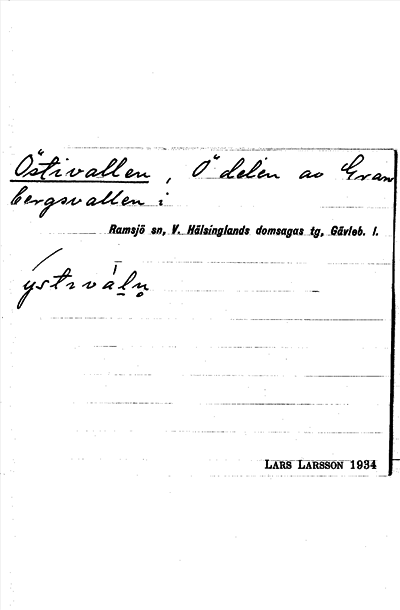 Östivallen, Ö delen av Gran
bergsvallen i
Ramsjö sn, V. Hälsinglands domsagas tg, Gävleb. l.
ystiváln̥
LARS LARSSON 1934